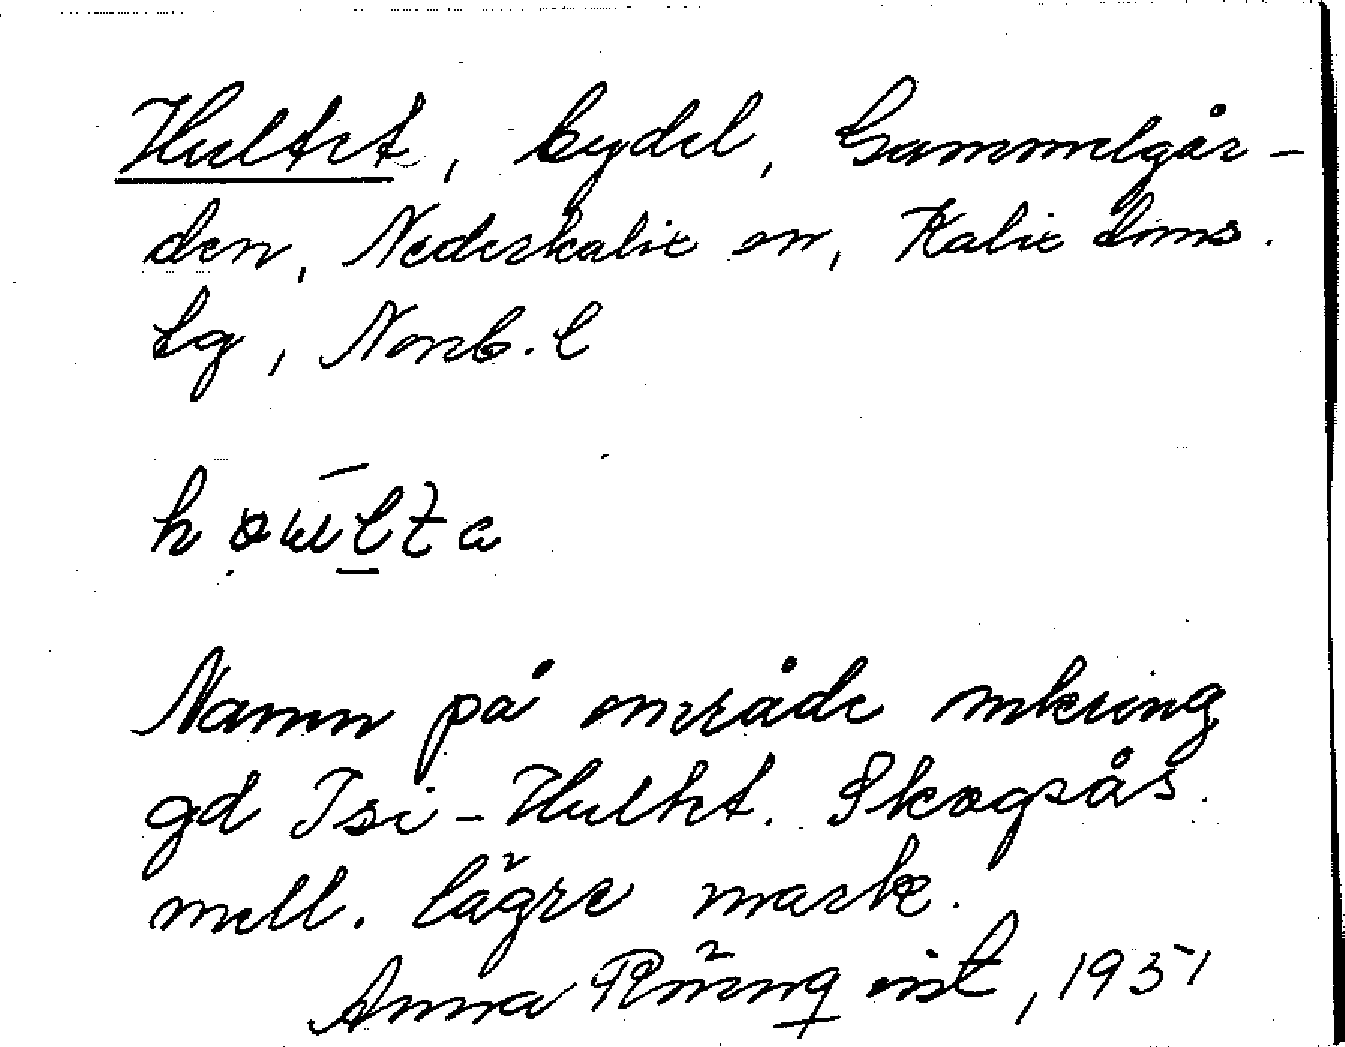 Hultet, bydel, Gammelgår-
den, Nederkalix sn, Kalix doms.
tg, Norrb. l
Namn på område omkring
gd Isi-Hultet. Skogsås
mell. lägre mark.
Anna Rönnqvist, 1951